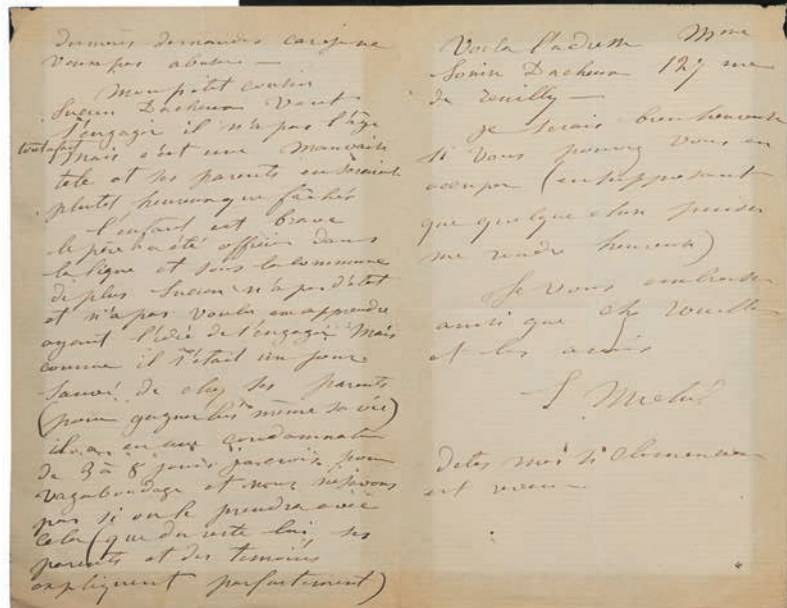 demandes car je ne
veux pas abuser —
Mon petit cousin
Lucien Dacheux veut
s'engager il n'a pas l'âge
tout à fait
mais c'est une mauvaise
tete et ses parents en seraient
plutôt heureux que fâchés
l'enfant est brave
le père a été officier dans
la ligne et sous la commune
de plus Lucien n'a pas d'état
et n'a pas voulu en apprendre
ayant l'idée de s'engager mais
comme il s'était un jour
sauvé de chez ses parents
(pour gagner lui même sa vie)
il a eu une condamnation
de 3 à 8 jours je crois pour
vagabondage et nous ne savons
pas si on le prendra avec
cela (que du reste lui, ses
parents et des temoins
expliquent parfaitement)
Voila l'adresse Mme
Dacheux 127 rue
de Reuilly —
Je serais bien heureuse
si vous pouviez vous en
occuper (en supposant
que quelque chose puisse
me rendre heureuse)
Je vous embrasse
ainsi que
et les amis
L Michel
Dites moi si Clemenceau
est revenu